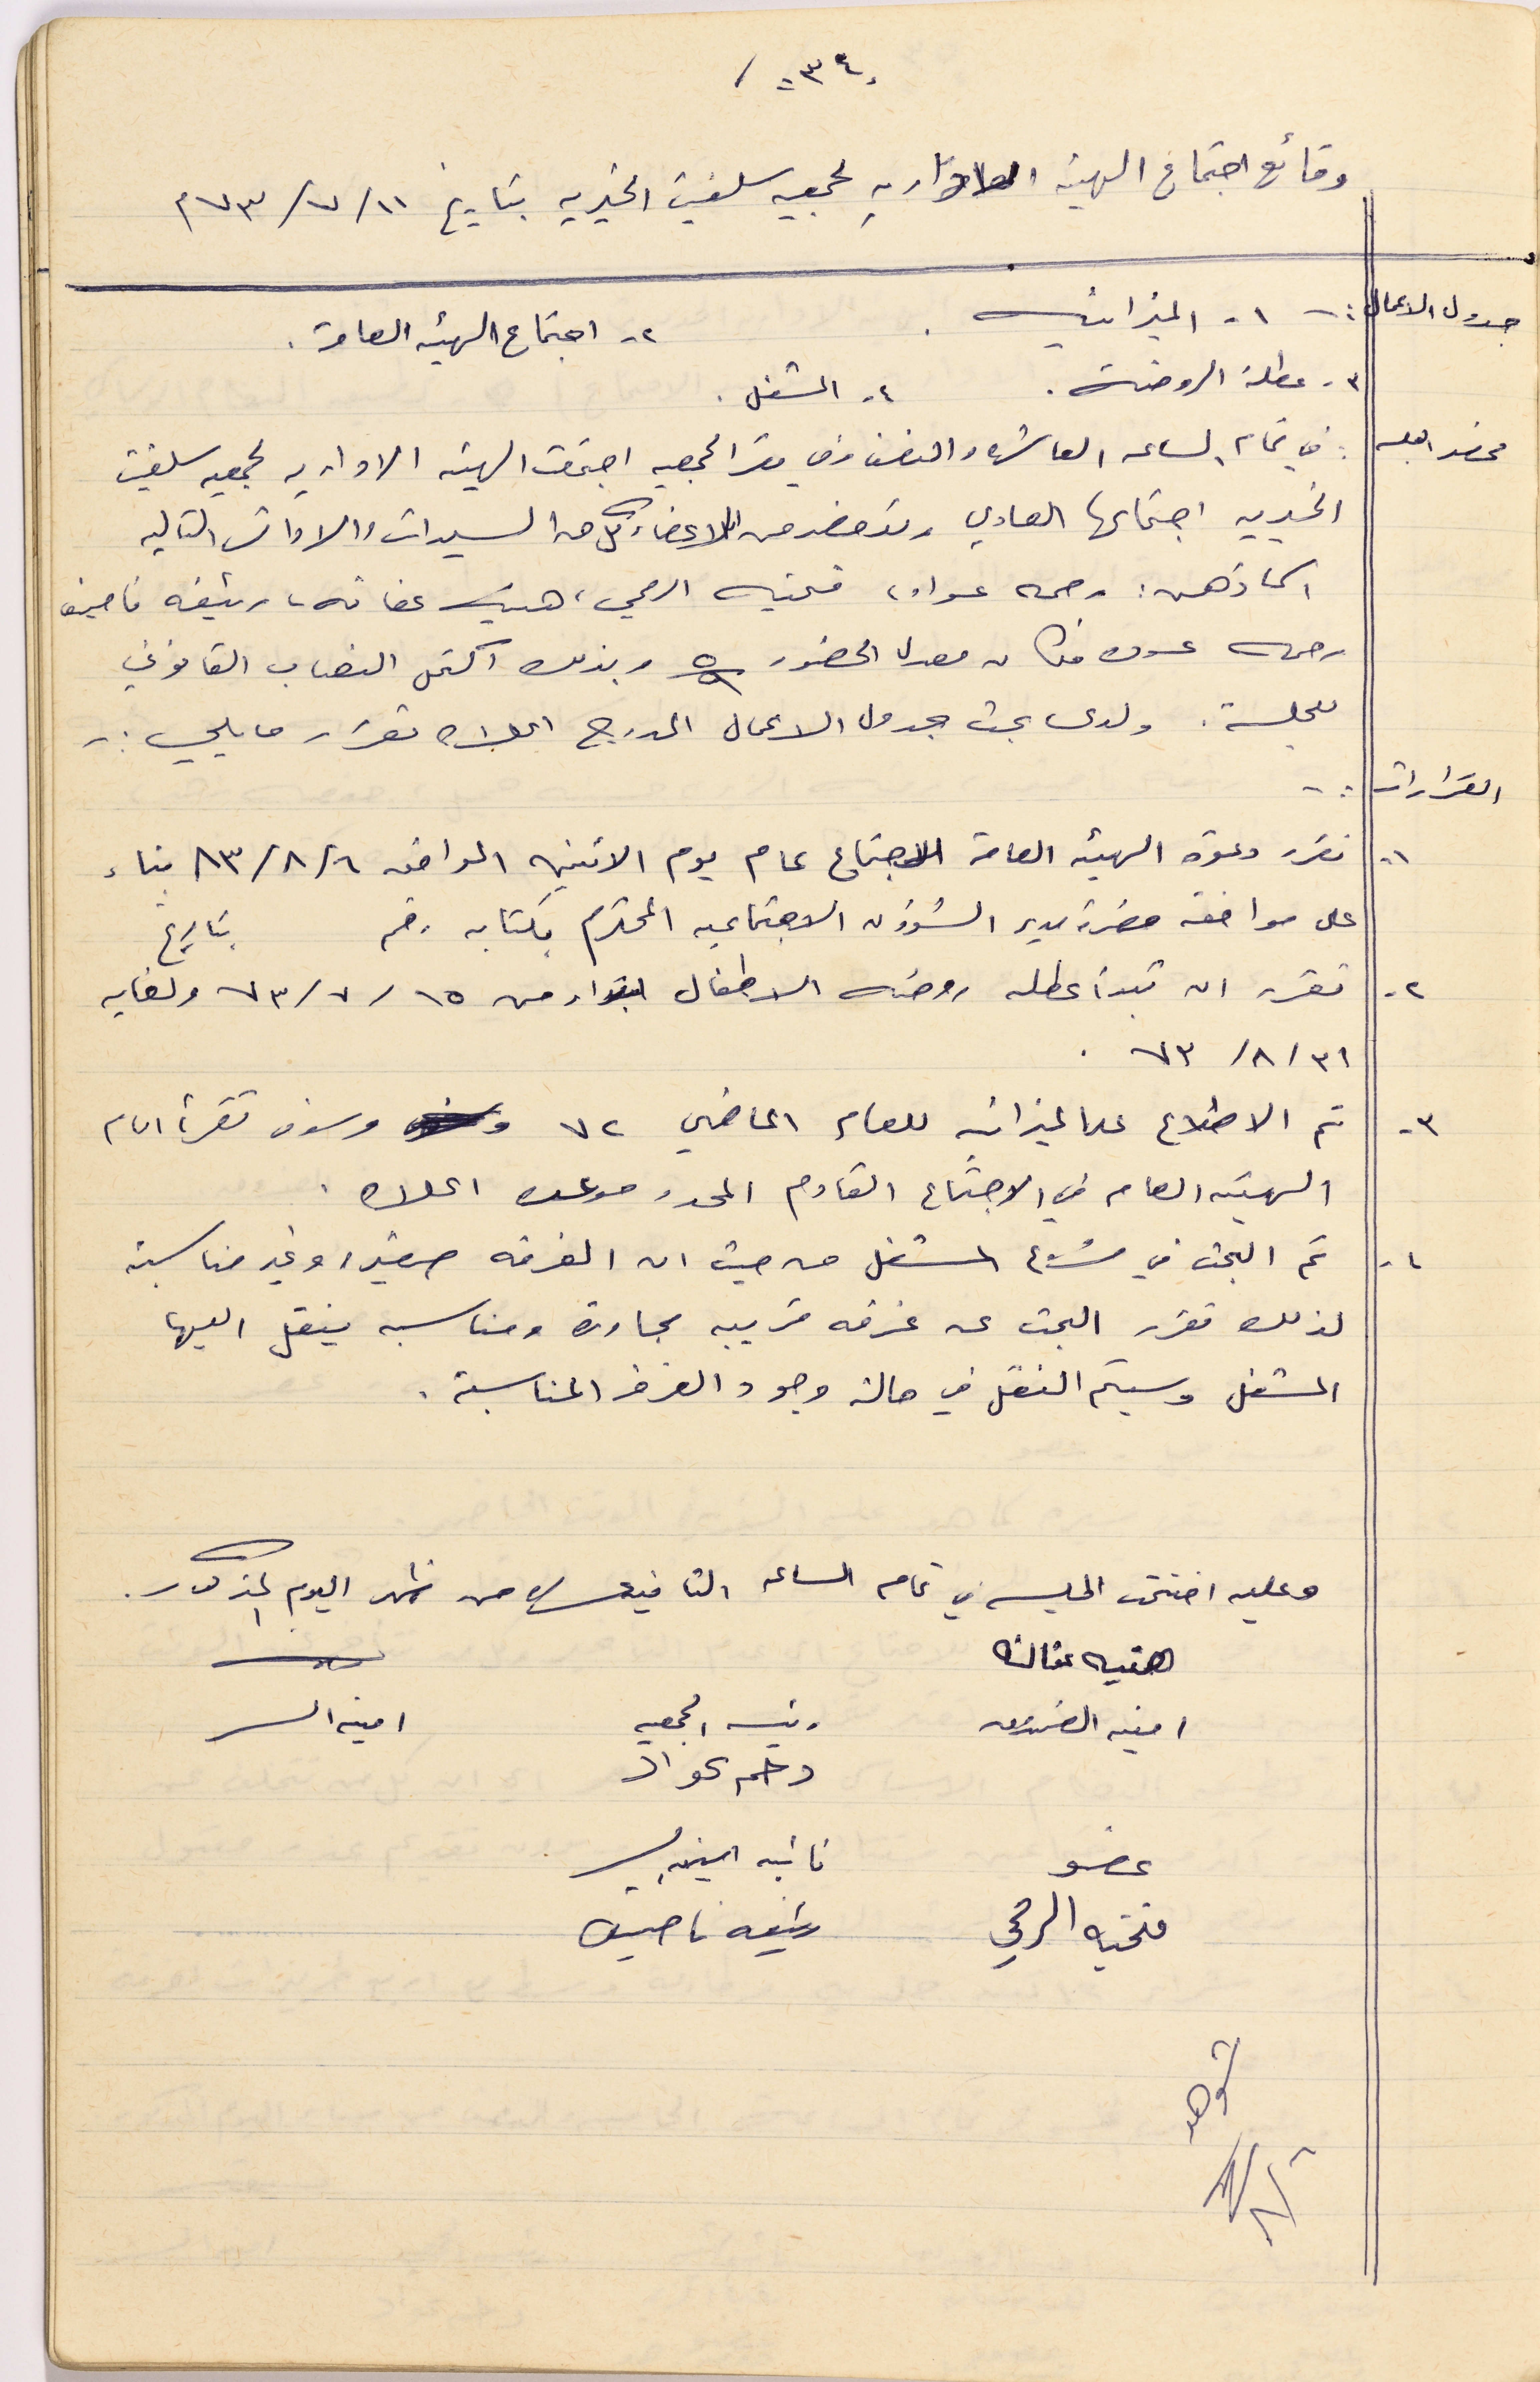 -٣٤-
وقائع اجتماع الهيئه الاداريه لجمعيه سلفيت الخيريه بتاريخ ١١/ ٧/ ٧٣م
جدول الاعمال :- ١- الميزانيه . ٢- اجتماع الهيئه العامة .
٣- عطلة الروضه . ٤- المشغل .
محضر الجلسه : في تمام الساعه العاشره والنصف وفي مقر الجمعيه اجتمعت الهيئه الاداريه لجمعيه سلفيت
الخيريه اجتماعها العادي وقد حضر من الاعضاء كل من السيدات والاوانس التاليه
اسماؤهن : رحمه عواد، فتحيه الرمحي، هنيه عفانه، رئيفه ناصيف
رحمه عوده فكان معدل الحضور ٥/٥ وبذلك اكتمل النصاب القانوني
للجلسة . ولدى بحث جدول الاعمال المدرج اعلاه تقرر ما يلي :-
القرارات :-
١- تقرر دعوة الهيئه العامة للاجتماع عام يوم الاثنين الموافق ٦/ ٨/ ٨٣ بناء
على موافقه حضرة مدير الشؤون الاجتماعيه المحترم بكتابه رقم بتاريخ
٢- تقرر ان تبدأ عطله روضه الاطفال ابتداء من ١٥/ ٧/ ٧٣ ولغايه
٣١/ ٨/ ٧٣ .
٣- تم الاطلاع على الميزانيه للعام الماضي ٧٢ وسوف تقرأ امام
الهيئه العام في الاجتماع القادم المحدد موعده اعلاه .
٤- تم البحث في مشروع المشغل من حيث ان الغرفه صغيره وغير مناسبة
لذلك تقرر البحث عن غرفه قريبه مجاوره ومناسبه ينقل اليها
المشغل وسيتم النقل في حالة وجود الغرف المناسبة .
وعليه اختتمت الجلسه في تمام الساعه الثانيه عشره من ظهر اليوم المذكور .
هنيه عفانه
امينه الصندوق رئيسه الجمعيه امينه السر
رحمه عواد
عضو نائبه امينه السر
فتحيه الرمحي رئيفه ناصيف
شوهد